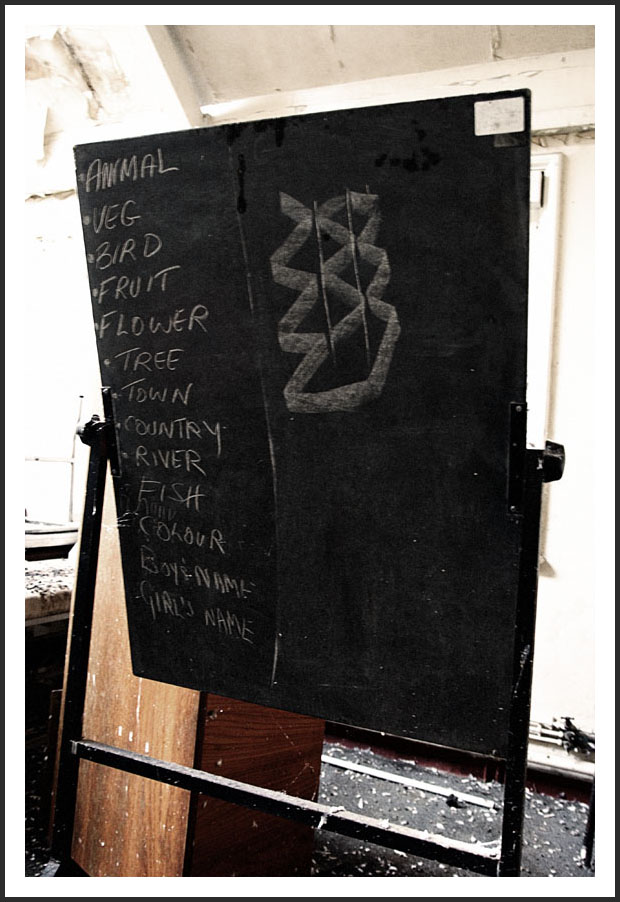 ANIMAL
VEG
BIRD
FRUIT
FLOWER
TREE
TOWN
COUNTRY
RIVER
FISH
COLOUR
BOY'S NAME
GIRL'S NAME